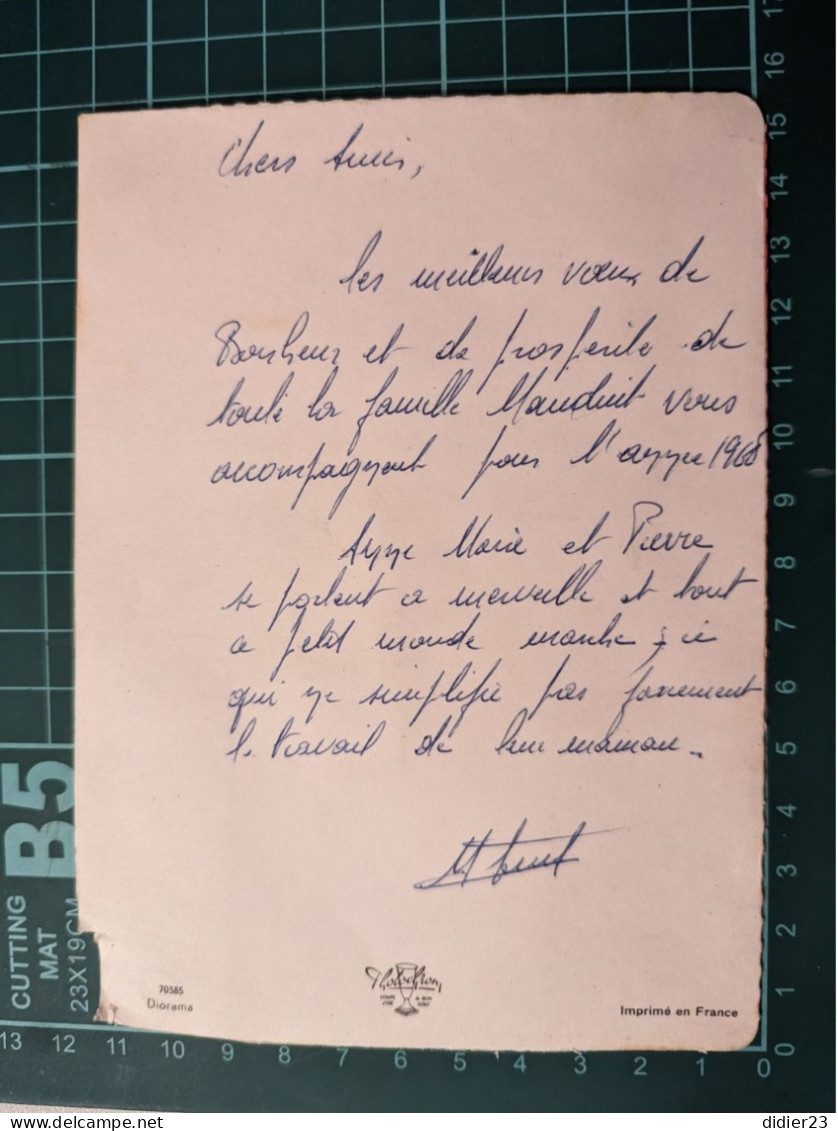 Chers Amis,
les meilleurs vœux de
Bonheur et de prosperite de
toute la famille Mauduit vous
accompagnent pour l'annee 1968
Anne Marie et Pierre
se portent a merveille et tout
ce petit monde marche ; ce
qui ne simplifie pas forcement
le travail de leur maman.
70585
Diorama
Photochrom
COUPE D'OR DU BON GOUT
Imprimé en France
CUTTING
MAT
23X19CM
B5
17
16
15
14
13
12
11
10
9
8
7
6
5
4
3
2
1
0
13 12 11 10 9 8 7 6 5 4 3 2 1 0
didier23